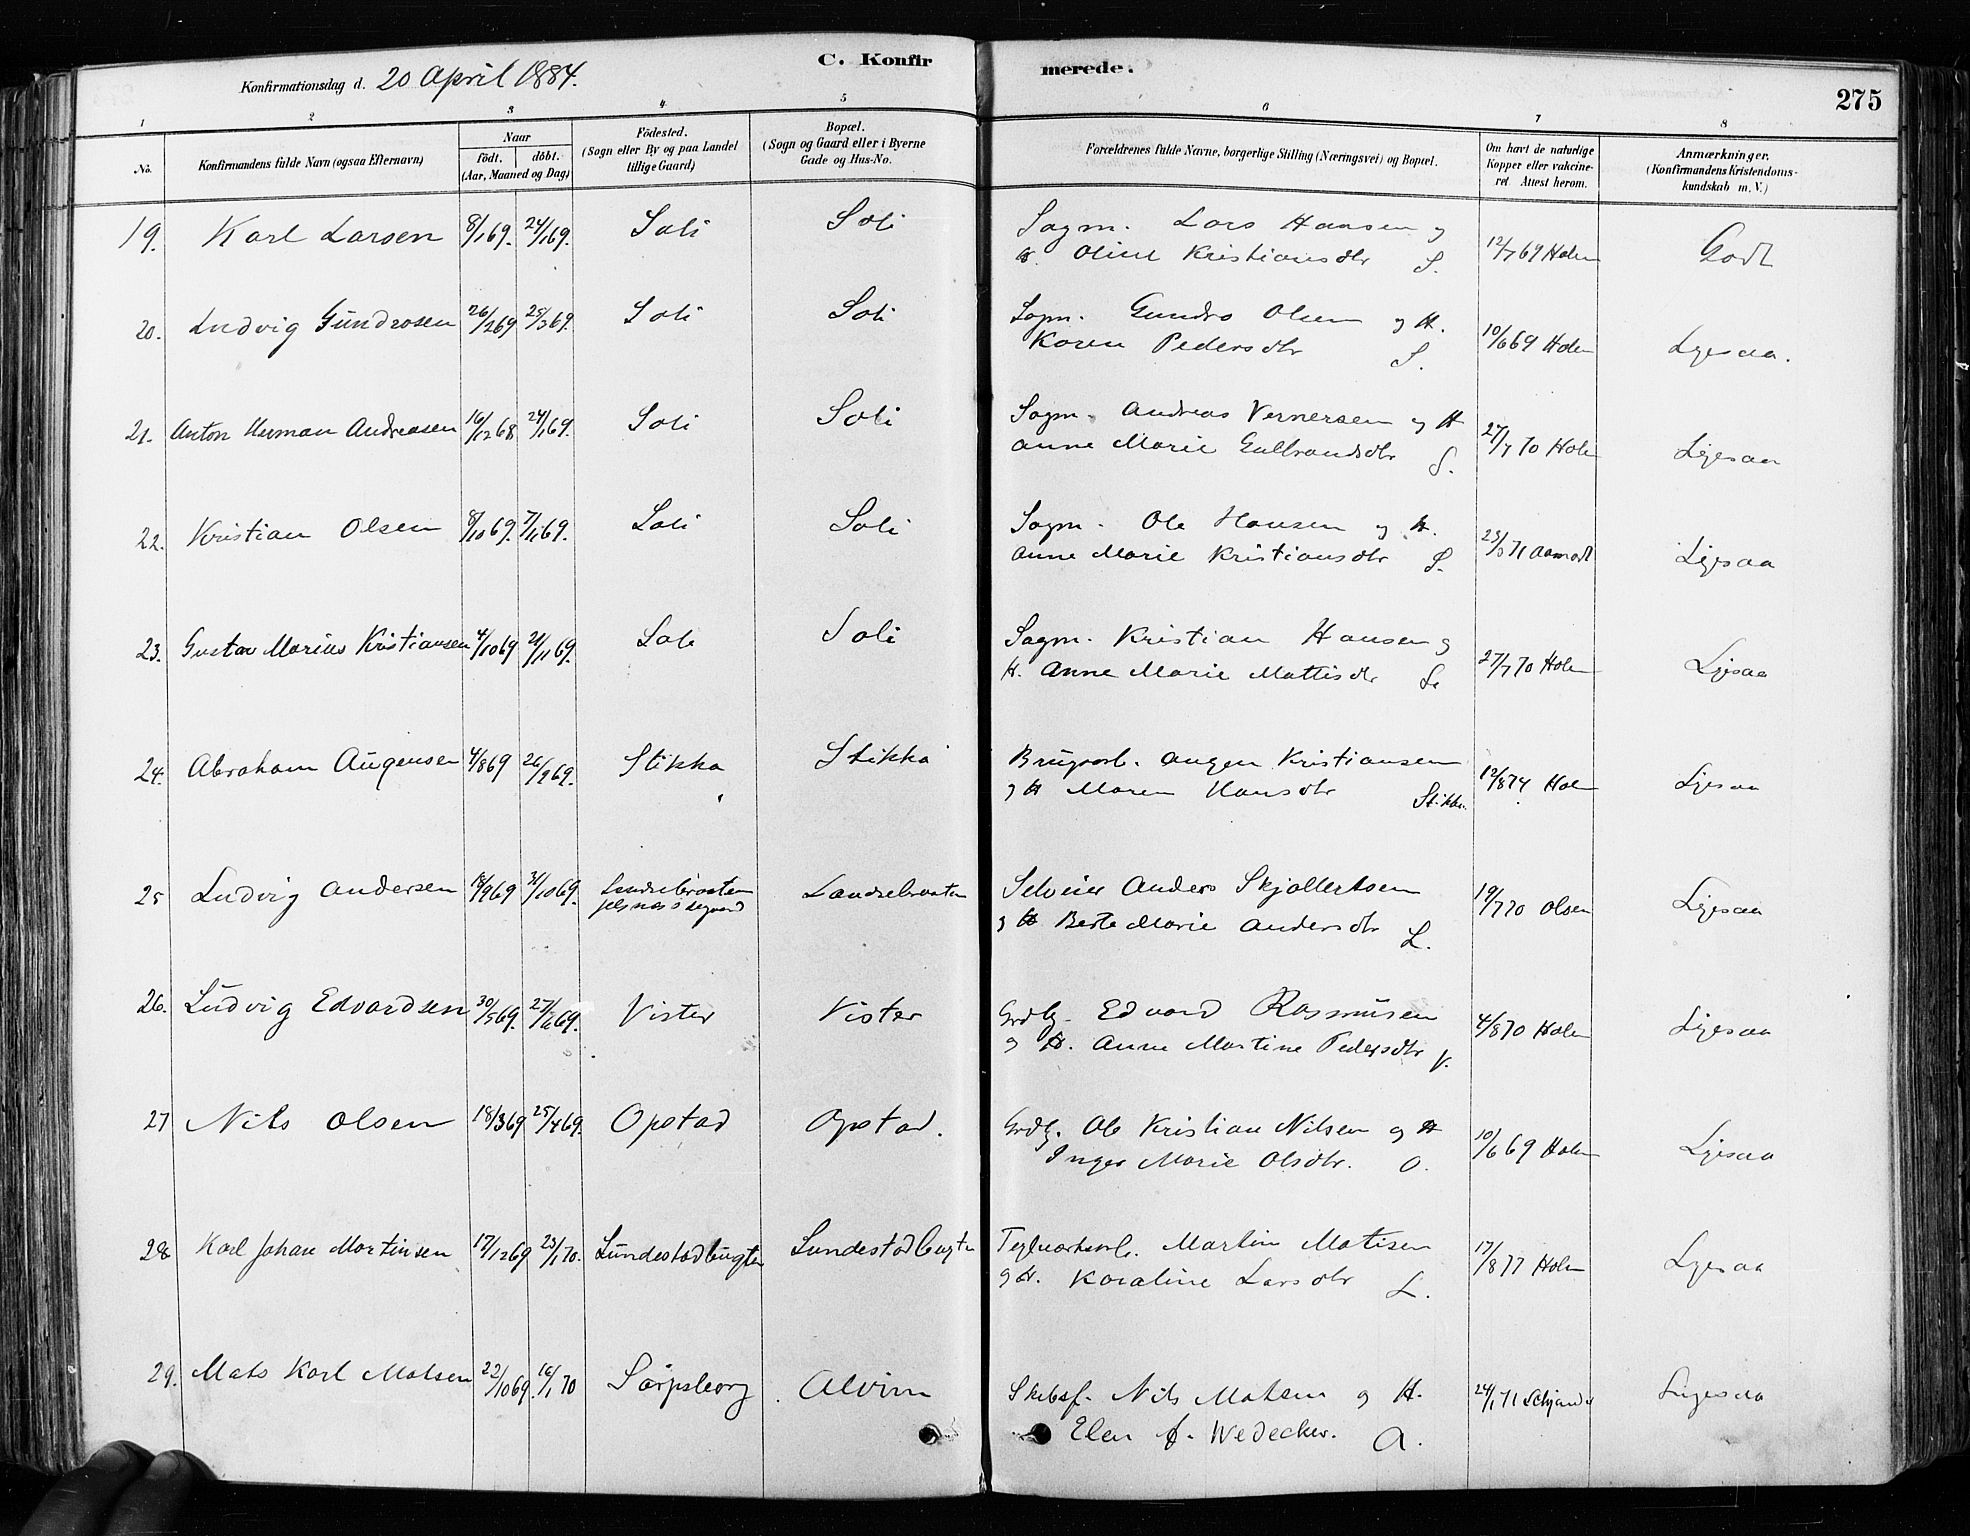 C. Konfirmerede.
275
Konfirmationsdag d. 20 April 1884.
1 2 3 4 5 6 7 8
No. Konfirmandens fulde Navn (ogsaa Efternavn)
Naar
födt. döbt.
(Aar, Maaned og Dag)
Födested.
(Sogn eller By og paa Landet
tillige Gaard)
Bopæl.
(Sogn og Gaard eller i Byerne
Gade og Hus-No.
Forældrenes fulde Navne, borgerlige Stilling (Næringsvei) og Bopæl.
Om havt de naturlige
Kopper eller vakcine-
ret Attest herom.
Anmærkninger.
(Konfirmandens Kristendoms-
kundskab m. V.)
19. Karl Larsen 8/1 69. 24/1 69. Soli Soli Sagm. Lars Hansen og 12/7 69 Holm Godt
H. Oline Kristiansdtr S.
20. Ludvig Gündrosen 26/2 69 25/3 69. Soli Soli Sagm. Gundro Olsen og H. 10/6 69 Holm Ligesaa.
Karen Pedersdtr S.
21. Anton Herman Andreasen 16/12 68 24/1 69. Soli Soli Sagm. Andreas Vernersen og H 27/7 70 Holm Ligesaa
Anne Marie Gulbrandsdtr S.
22. Kristian Olsen 8/10 69. 7/11 69. Soli Soli Sagm. Ole Hansen og H. 23/3 71 Aamodt Ligesaa
Anne Marie Kristiansdtr S.
23. Gustav Marius Kristiansen 4/10 69 21/11 69. Soli Soli Sagm. Kristian Hansen og 27/7 70 Holm Ligesaa
H. Anne Marie Mattisdtr S.
24. Abraham Aügensen 4/8 69 26/9 69. Stikka Stikka Brugsarb. Augen Kristiansen 12/8 74 Holm Ligesaa
og H Maren Hansdtr Stikka.
25 Ludvig Andersen 18/9 69 31/10 69. Landsebraaten Landsebraaten Selveier Anders Skjollertsen 19/7 70 Olsen Ligesaa
og H Berte Marie Andersdtr L.
26. Lüdvig Edvardsen 30/5 69. 27/6 69. Vister Vister Grdbr. Edvard Rasmüsen 4/8 70 Holm Ligesaa
og H. Anne Martine Pedersdtr V.
27 Nils Olsen 18/3 69 25/4 69. Opstad Opstad. Grdbr. Ole Kristian Nilsen og H 10/6 69 Holm Ligesaa
Inger Marie Olsdtr. O.
28 Karl Johan Martinsen 17/12 69 23/1 70. Lündestadbugten Lundestadbugten Teglverksarb. Martin Matisen 17/8 77 Holm Ligesaa
og H. Karoline Larsdtr L.
29. Mats Karl Matsen 22/10 69. 16/1 70 Sarpsborg Alvim Skibsf. Nils Matsen og H. 24/1 71 Ligesaa
Elen f. Wedecker. A.